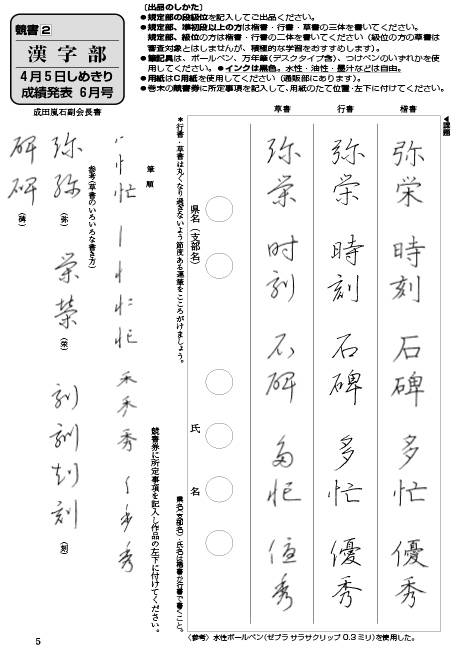 競書2
漢字部
4月5日しめきり
成績発表 6月号
〔出品のしかた〕
●規定部の段級位を記入してご出品ください。
●規定部、準初段以上の方は楷書・行書・草書の三体を書いてください。
規定部、級位の方は楷書・行書の二体を書いてください（級位の方の草書は
審査対象とはしませんが、積極的な学習をおすすめします）。
●筆記具は、ボールペン、万年筆（デスクタイプ含）、つけペンのいずれかを使
用してください。●インクは黒色。水性・油性・墨汁などは自由。
●用紙はC用紙を使用してください（通販部にあります）。
●巻末の競書券に所定事項を記入して、用紙のたて位置・左下に付けてください。
◀課題
楷書
弥栄 時刻 石碑 多忙 優秀
行書
弥栄 時刻 石碑 多忙 優秀
草書
弥栄 時刻 石碑 多忙 優秀
県名（支部名）
氏名
県名（支部名）・氏名は楷書か行書で書くこと。
＊行書・草書は丸くなり過ぎないよう節度ある運筆をこころがけましょう。
競書券に所定事項を記入し作品の左下に付けてください。
筆順
忙
忙
秀
秀
参考（草書のいろいろな書き方）
弥 弥（弥） 栄 榮（栄） 刻 刻 刻 刻（刻）
碑 碑（碑）
成田嵐石副会長書
〈参考〉水性ボールペン（ゼブラ サラサクリップ 0.3ミリ）を使用した。
5